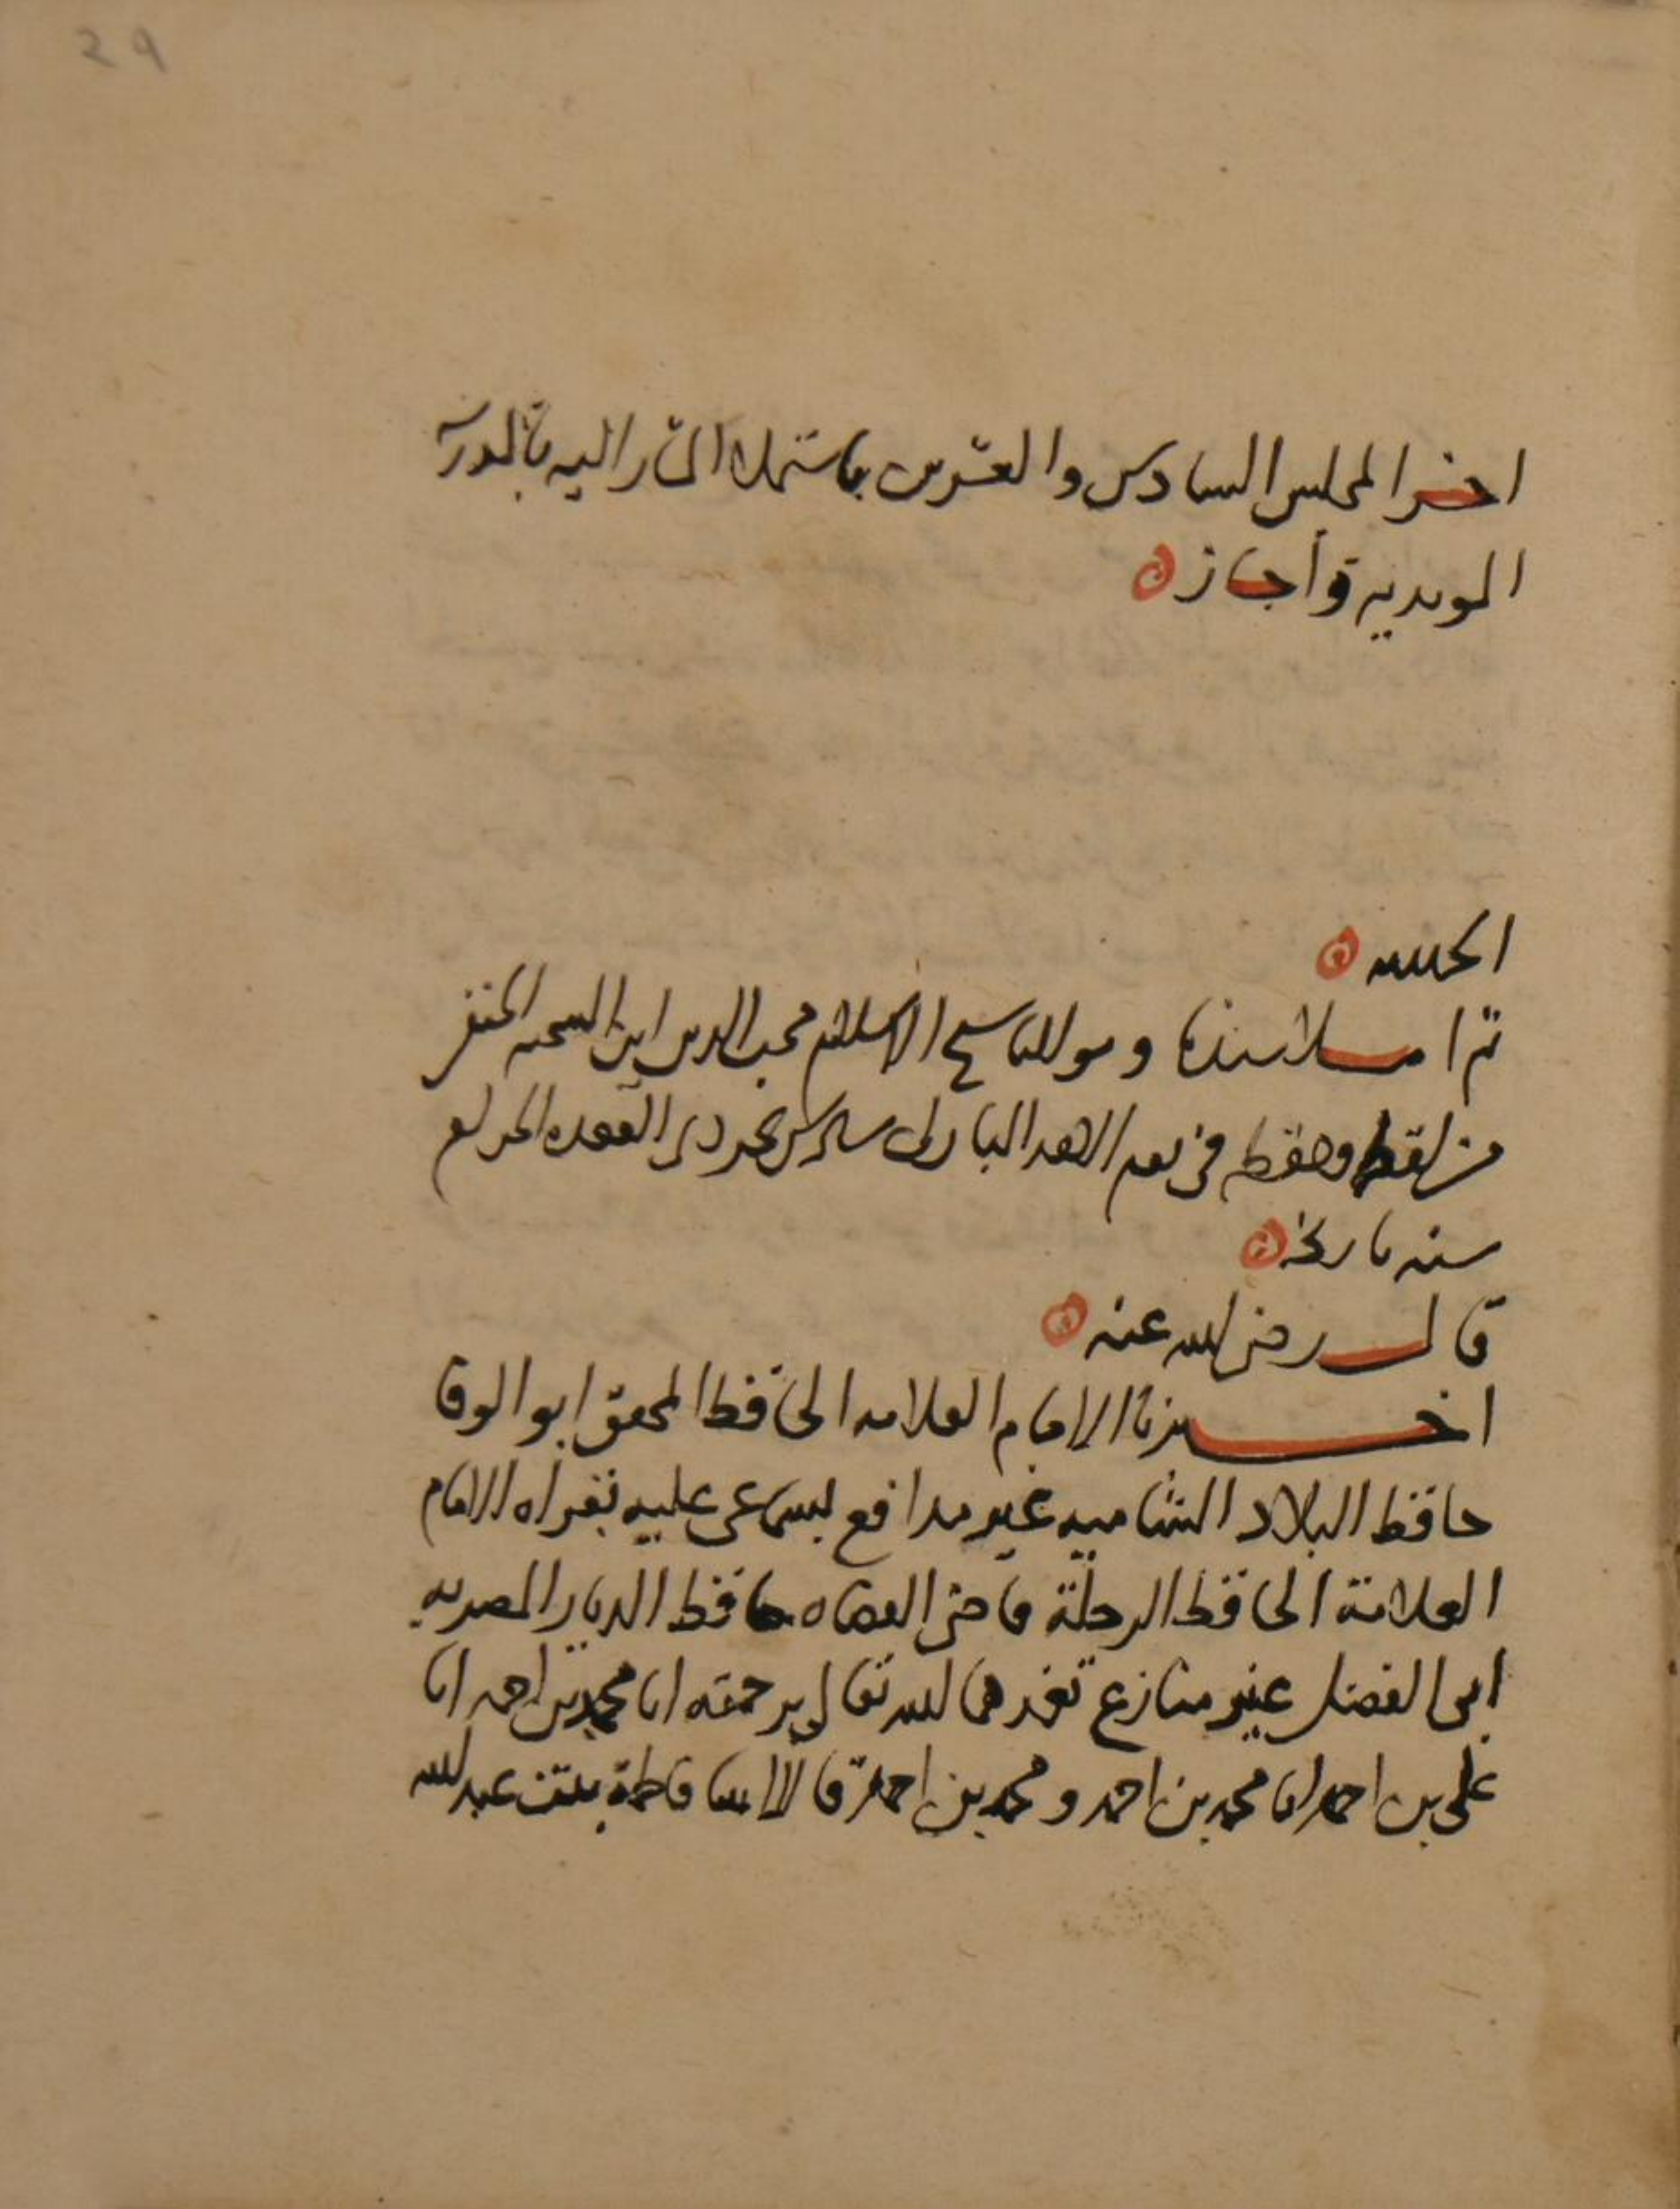 29
اخر المجلس السادس والعشرين باستملاء المشار اليه بالمدرسة
المويدية وأجاز
الحمد لله
ثم املا سيدنا ومولانا شيخ الاسلام محب الدين ابن الشحنه الحنفي
من لفظه وحفظه في يوم الاحد المبارك القعده الحرام
سنه تاريخه
قال رضي الله عنه
اخبرنا الامام العلامه الحافظ المحقق ابو الوفا
حافظ البلاد الشاميه غير مدافع بسماعي عليه بقراه الامام
العلامة الحافظ الرحلة قاضي القضاه حافظ الديار المصريه
ابي الفضل غير منازع تغمدهما الله تعالى برحمته انا محمد بن احمد انا
علي بن احمد انا محمد بن احمد ومحمد بن احمد قالا انبأتنا فاطمة بنت عبد الله